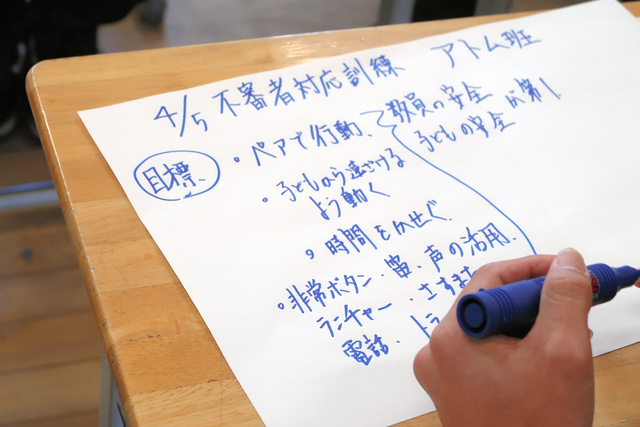 4/5 不審者対応訓練 アトム班
目標
・ペアで行動、
教員の安全
子どもの安全 が第1
・子どもから遠ざける
よう動く
・時間をかせぐ.
・非常ボタン・笛・声の活用.
ランチャー・さすまた
電話・ト